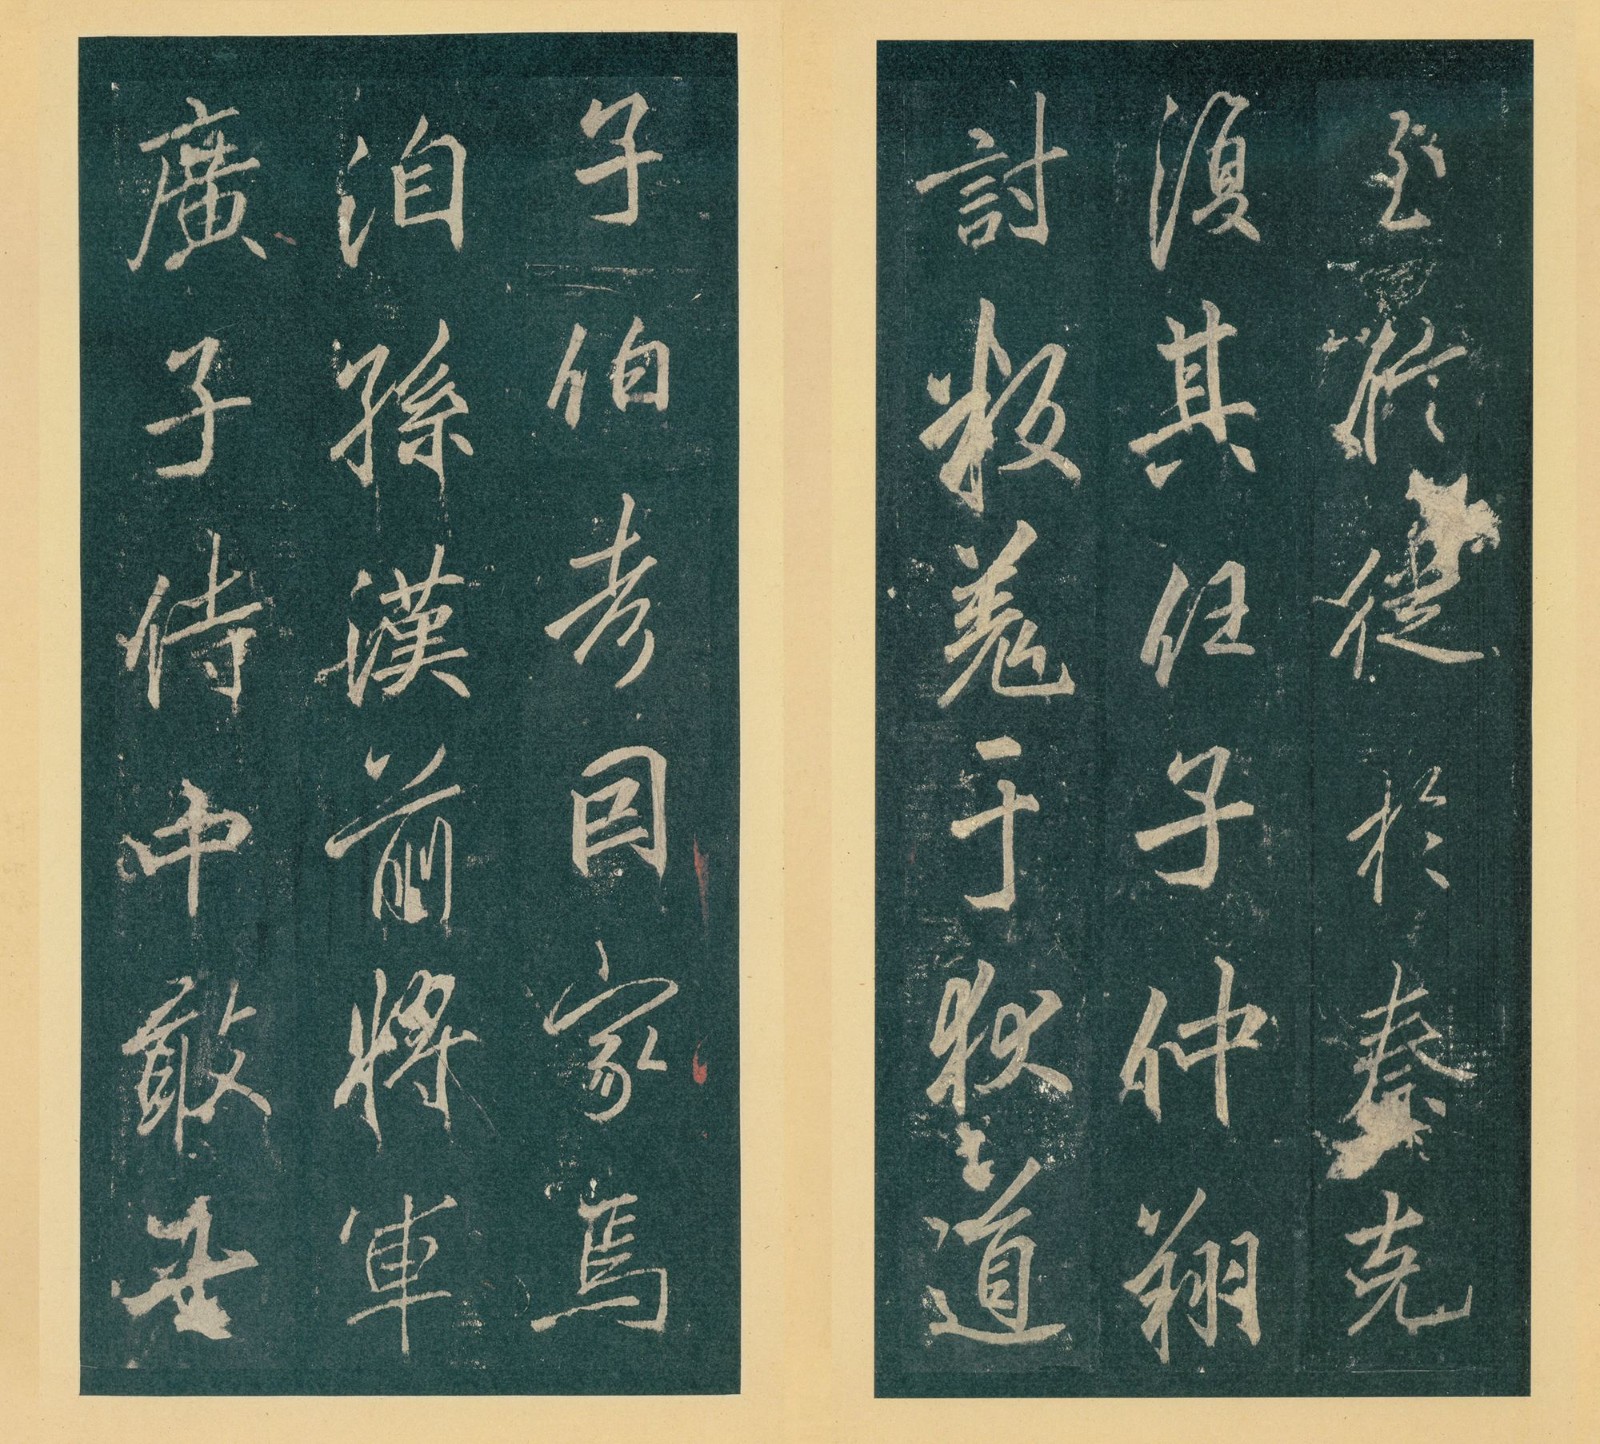 至於徙於秦克
復其任子仲翔
討叛羌于狄道
子伯考因家焉
洎孫漢前將軍
廣子侍中敢世